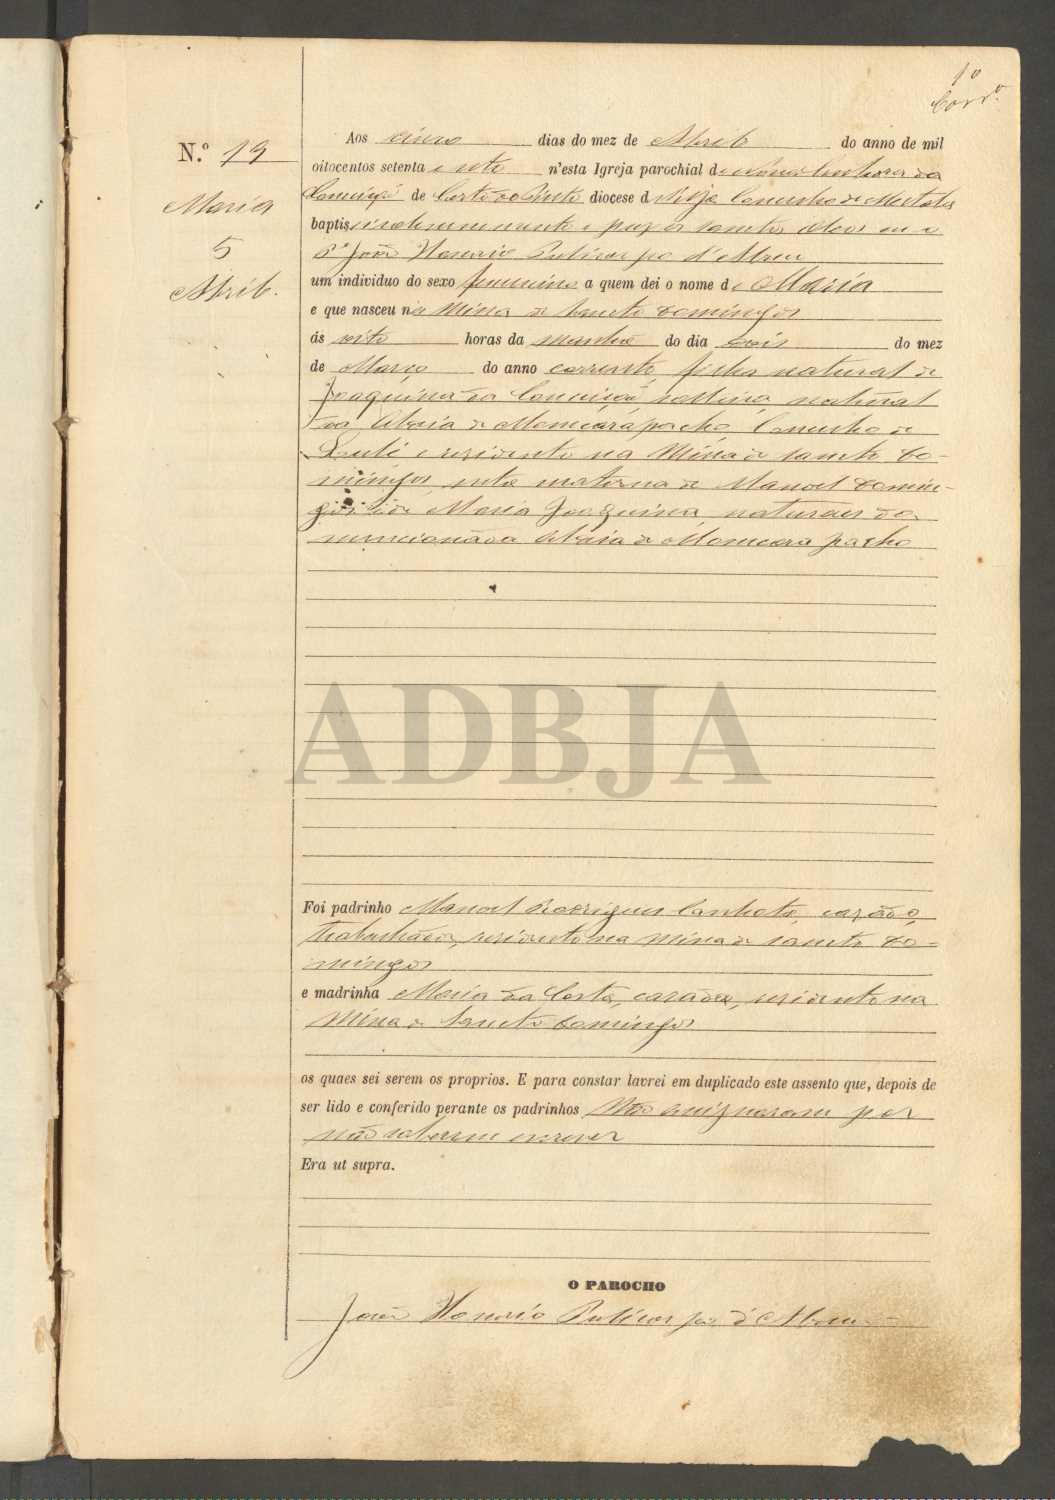 1º
Corrº.
N.º 19
Maria
5
Abril.
Aos cinco dias do mez de Abril do anno de mil
oitocentos setenta e sete n'esta Igreja parochial de Nossa Senhora da
Conceição de Corte do Pinto diocese de Beja Concelho de Mertola
baptisei solemnemente e puz os sanctos oleos eu o
Pe João Honorio Policarpo d'Abreu
um individuo do sexo feminino a quem dei o nome de Maria
e que nasceu na Mina de Sancto Domingos
ás oito horas da manhã do dia dois do mez
de Março do anno corrente, filha natural de
Joaquina da Conceição, solteira, natural
da Aldeia de Moncarapacho, Concelho de
Loulé e residente na Mina de Sancto Do-
mingos, neta materna de Manoel Domin-
gos e de Maria Joaquina, naturaes da
mencionada Aldeia de Moncarapacho
ADBJA
Foi padrinho Manoel Rodrigues Canhoto, casado,
trabalhador, residente na Mina de Sancto Do-
mingos
e madrinha Maria da Costa, casada, residente na
Mina de Sancto Domingos
os quaes sei serem os proprios. E para constar lavrei em duplicado este assento que, depois de
ser lido e conferido perante os padrinhos não assignaram por
não saberem escrever
Era ut supra.
O PAROCHO
João Honorio Policarpo d'Abreu